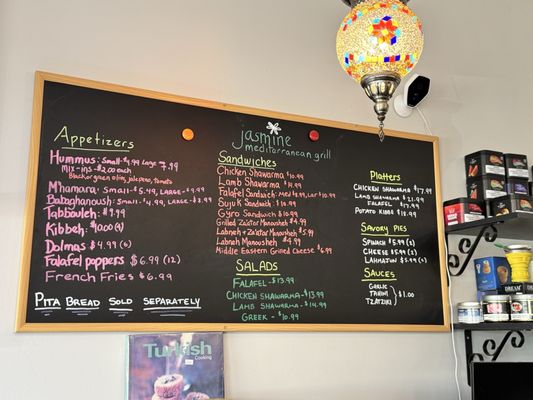 jasmine
mediterranean grill
Appetizers
Hummus: Small- $4.99 Large 7.99
Mix-ins- $2.00 each
Black or green olive, jalapeno, tomato
M'hamara: Small- $5.49, Large-
Babaghanoush: Small- $4.99, Large-
Tabbouleh: $4.99
Kibbeh:
Dolmas $4.99 (6)
Falafel poppers $6.99 (12)
French Fries $6.99
Pita Bread Sold Separately
Sandwiches
Chicken Shawarma $10.99
Lamb Shawarma $14.99
Falafel Sandwich:
Sujuk Sandwich $10.99
Gyro Sandwich $10.99
Grilled Za'atar Manousheh $4.99
Labneh + Za'atar Manousheh $5.99
Labneh Manousheh $4.99
Middle Eastern Grilled Cheese $6.99
Salads
Falafel- $13.99
Chicken Shawarma- $13.99
Lamb Shawarma- $14.99
Greek- $10.99
Platters
Chicken Shawarma $17.99
Lamb Shawarma $21.99
Falafel $17.99
Potato Kibba $18.99
Savory Pies
Spinach $5.99 (2)
Cheese $5.99 (2)
Lahmajun $5.99 (2)
Sauces
Garlic
Tahini
Tzatziki
$1.00
Turkish
Cooking